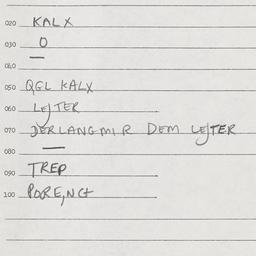 020 KALX
030 O
040 —
050 QGL KALX
060 LEJTER
070 DERLANGMIR DEM LEJTER
080 —
090 TREP
100 PORE,NGT